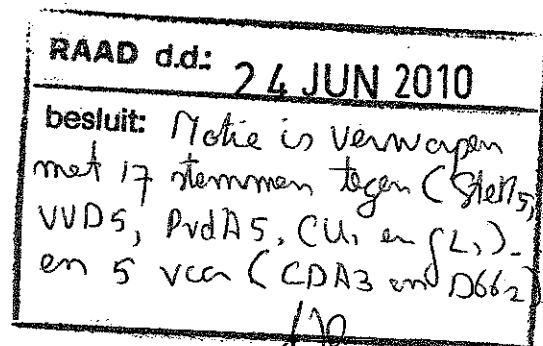 RAAD d.d.: 24 JUN 2010
besluit: Motie is verworpen
met 17 stemmen tegen (
VVD5, PvdA5, CU1 en GL1)
en 5 voor (CDA3 en D662)